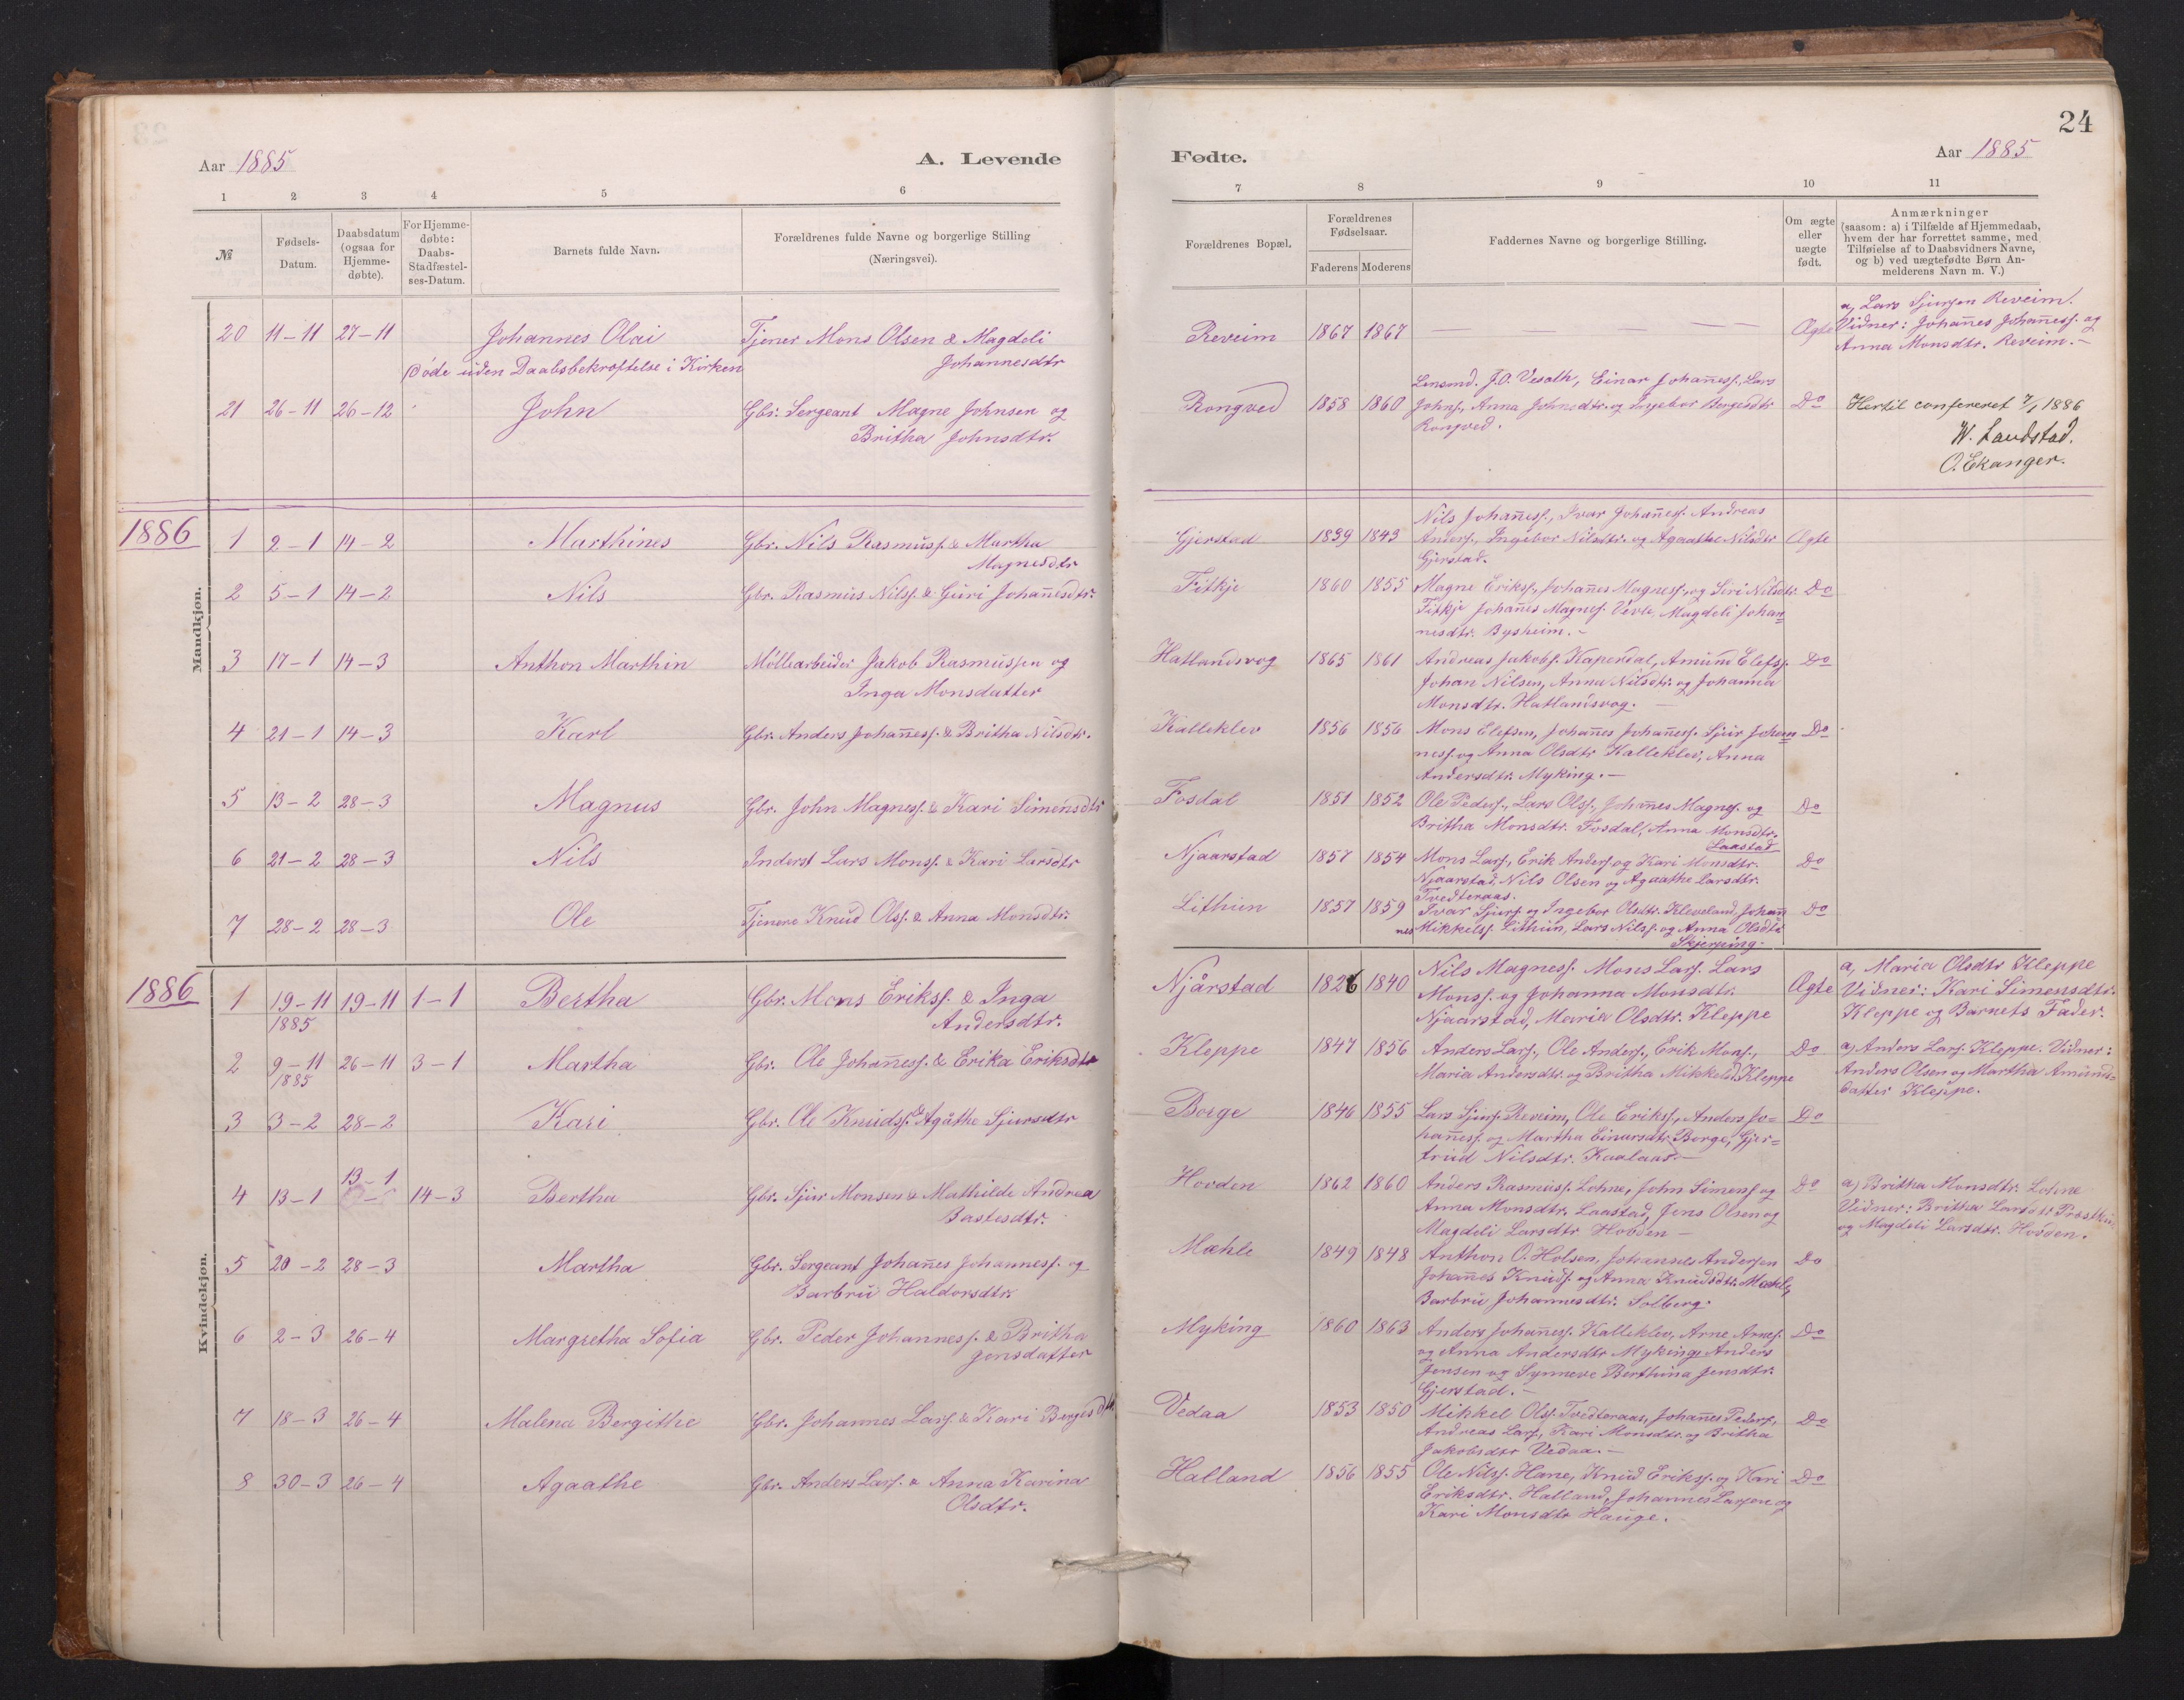 24
Aar 1885
A. Levende
Fødte.
Aar 1885
1 2 3 4 5 6 7 8 9 10 11
№
Fødsels-
Datum.
Daabsdatum
(ogsaa for
Hjemme-
døbte).
For Hjemme-
døbte:
Daabs-
Stadfæstel-
ses-Datum.
Barnets fulde Navn.
Forældrenes fulde Navne og borgerlige Stilling
(Næringsvei).
Forældrenes Bopæl.
Forældrenes
Fødselsaar.
Faderens Moderens
Faddernes Navne og borgerlige Stilling.
Om ægte
eller
uægte
født.
Anmærkninger
(saasom: a) i Tilfælde af Hjemmedaab,
hvem der har forrettet samme, med
Tilføielse af to Daabsvidners Navne,
og b) ved uægtefødte Børn An-
melderens Navn m. V.)
20 11-11 27-11 Johannes Olai Tjener Mons Olsen & Magdeli
Johannesdtr
Døde uden Daabsbekræftelse i Kirken
Reveim 1867 1867 — — — — Ægte
a, Lars Sjursen Reveim.
Vidner: Johañes Johañess. og
Anna Monsdtr. Reveim.-
21 26-11 26-12 John Gbr. Sergeant Magne Johnsen og
Britha Johnsdtr.
Rongved 1858 1860
Lensmd. J.O. Vesoth, Einar Johañess., Lars
Johns., Anna Johnsdtr. og Ingebor Bergesdtr
Rongved.
Do Hertil confereret 7/1 1886
W. Landstad.
O. Ekanger.
1886
Mandkjøn.
1 2-1 14-2 Marthines Gbr. Nils Rasmuss. & Martha
Magnesdtr
Gjerstad 1839 1843
Nils Johañess., Ivar Johañess. Andreas
Anders., Ingebor Nilsdtr. og Agaathe Nilsdtr
Gjerstad.
Ægte
2 5-1 14-2 Nils Gbr. Rasmus Nilss. & Guri Johañesdtr.
Fitkje 1860 1855
Magne Erikss., Johañes Magness., og Siri Nilsdtr.
Fitkje Johañes Magnes. Vevle, Magdeli Johan
nesdtr. Bysheim.-
Do
3 17-1 14-3 Anthon Marthin Møllearbeider Jakob Rasmussen og
Inga Monsdatter
Hatlandsvog 1865 1861
Andreas Jakobs. Kaperdal, Amund Elefss.
Johan Nilsen, Anna Nilsdtr. og Johanna
Monsdtr. Hatlandsvog. —
Do
4 21-1 14-3 Karl Gbr. Anders Johañess. & Britha Nilsdtr.
Kalleklev 1856 1856
Mons Elefsen, Johañes Johañess. Sjur Johan
ness. og Anna Olsdtr Kalleklev, Anna
Andersdtr. Myking.—
Do
5 13-2 28-3 Magnus Gbr. John Magness. & Kari Simensdtr
Fosdal 1851 1852
Ole Peders., Lars Olss., Johañes Magnes. og
Britha Monsdtr. Fosdal, Anna Monsdtr.
Laastad
Do
6 21-2 28-3 Nils Inderst Lars Monss. & Kari Larsdtr
Njaarstad 1857 1854
Mons Lars., Erik Anders. og Kari Monsdtr.
Njaarstad. Nils Olsen og Agaathe Larsdtr.
Tvedteraas.
Do
7 28-2 28-3 Ole Tjenere Knud Olss. & Anna Monsdtr.
Lithun 1857 1859
Ivar Sjurs. og Ingebor Olsdtr. Kleveland. Johañ
nes Mikkelss. Lithun, Lars Nilss. og Anna Olsdtr
Skjerping.
Do
1886
Kvindekjøn.
1 19-11 19-11 1-1 Bertha Gbr. Mons Erikss. & Inga
1885 Andersdtr.
Njårstad 1826 1840
Nils Magness. Mons Lars. Lars
Monss. og Johanna Monsdtr.
Njaarstad, Maria Olsdtr. Kleppe
Ægte
a, Maria Olsdtr Kleppe
Vidner: Kari Simensdtr.
Kleppe og Barnets Fader.
2 9-11 26-11 3-1 Martha Gbr. Ole Johañess. & Erika Eriksdtr
1885
Kleppe 1847 1856
Anders Lars., Ole Anders., Erik Mons.,
Maria Andersdtr. og Britha Mikkelsd Kleppe
Do
a, Anders Lars. Kleppe. Vidner:
Anders Olsen og Martha Amunds-
datter Kleppe.
3 3-2 28-2 Kari Gbr. Ole Knudss. & Agåthe Sjursdtr
Borge 1846 1855
Lars Sjurs. Reveim, Ole Erikss., Anders Jo-
hañess. og Martha Einarsdtr Borge, Gjer-
trud Nilsdtr. Kaalaas.—
Do
4 13-1 13-1 14-3 Bertha Gbr. Sjur Monsen & Mathilde Andrea
Bastesdtr.
Hovden 1862 1860
Anders Rasmuss. Lohne, John Simens. og
Anna Monsdtr. Laastad, Jens Olsen og
Magdeli Larsdtr Hovden —
Do
a, Britha Monsdtr. Lohne
Vidner: Britha Larsdtr
og Magdeli Larsdtr. Hovden.
5 20-2 28-3 Martha Gbr. Sergeant Johañes Johanness. og
Barbru Haldorsdtr.
Mæhle 1849 1848
Anthon O. Holsen, Johannes Andersen
Johañes Knuds. og Anna Knudsdtr. Mæhle,
Barbru Johannesdtr. Solberg.
Do
6 2-3 26-4 Margretha Sofia Gbr. Peder Johanness. & Britha
Jensdatter
Myking 1860 1863
Anders Johañess. Kalleklev, Arne Arnes.
og Anna Andersdtr Myking, Anders
Jensen og Synneve Berthina Jensdtr.
Gjerstad.—
Do
7 18-3 26-4 Malena Bergithe Gbr. Johannes Lars. & Kari Bergesdtr
Vedaa 1853 1850
Mikkel Olss. Tvedteraas, Johañes Peders.,
Andreas Lars., Kari Monsdtr. og Britha
Jakobsdtr Vedaa.—
Do
8 30-3 26-4 Agaathe Gbr. Anders Lars. & Anna Karina
Olsdtr.
Halland 1856 1855
Ole Nilss. Hane, Knud Erikss. og Kari
Eriksdtr. Halland, Johannes Larsen og
Kari Monsdtr Hauge.
Do